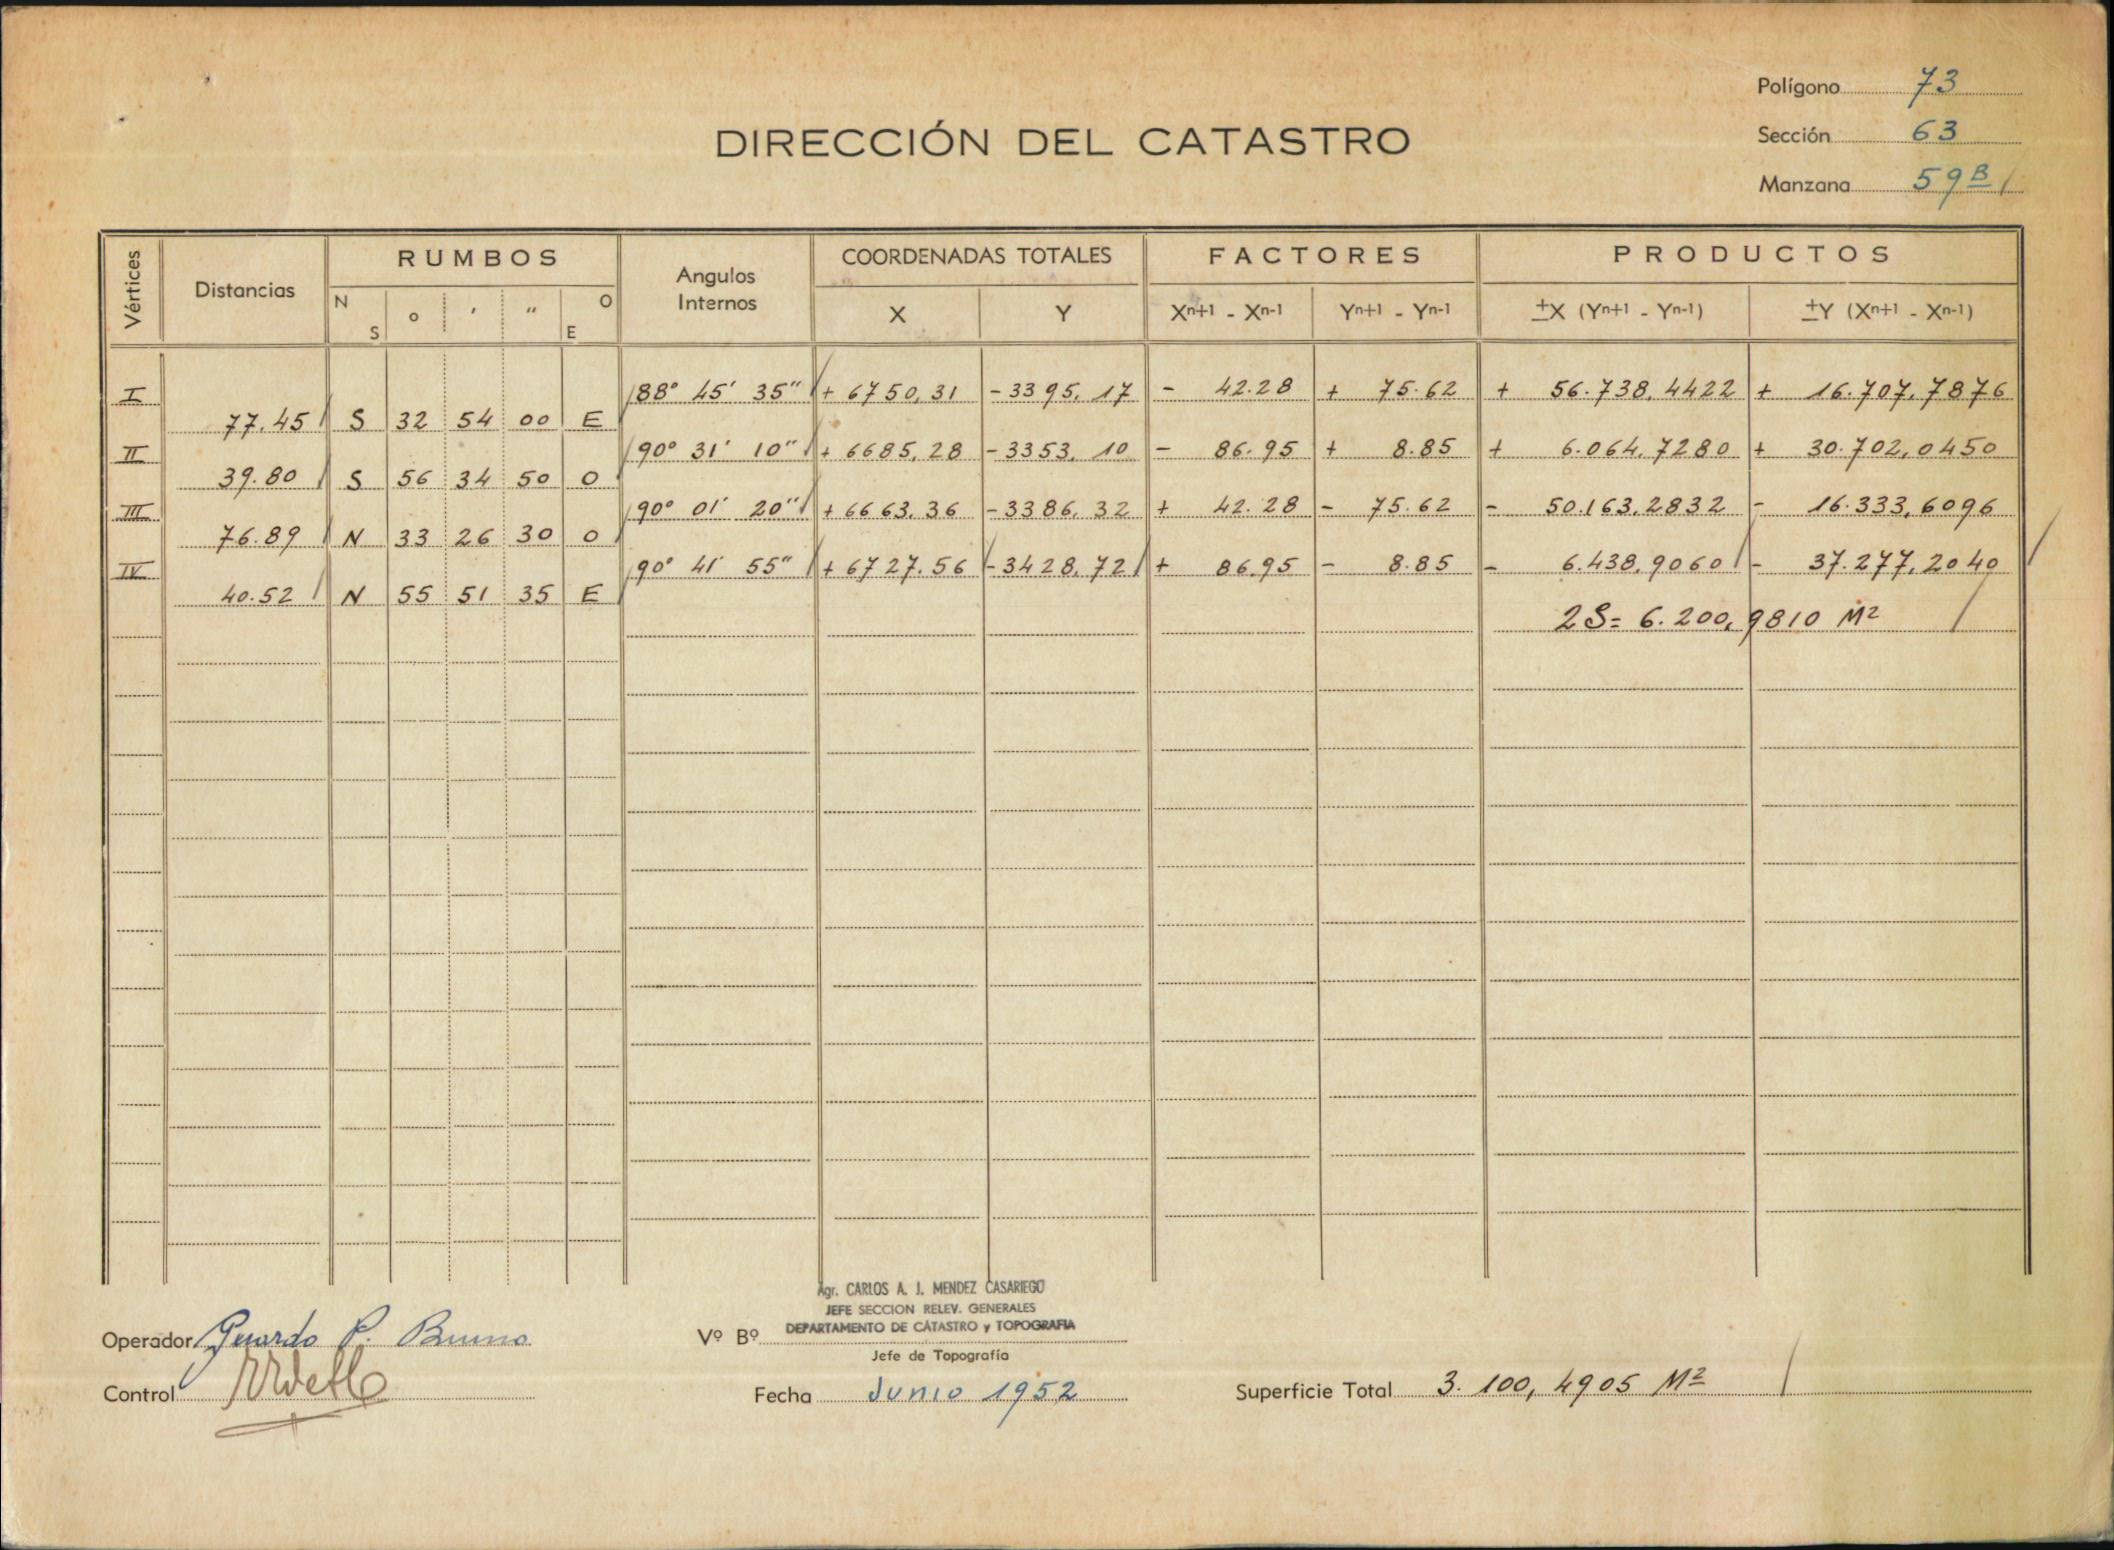 Polígono 73
DIRECCIÓN DEL CATASTRO
Sección 63
Manzana 59 B
Vértices Distancias RUMBOS Angulos Internos COORDENADAS TOTALES FACTORES PRODUCTOS
N S o ' " O E X Y Xn+1 - Xn-1 Yn+1 - Yn-1 ±X (Yn+1 - Yn-1) ±Y (Xn+1 - Xn-1)
I 88° 45' 35" + 6750,31 - 3395,17 - 42.28 + 75.62 + 56.738,4422 + 16.707,7876
77.45 S 32 54 00 E
II 90° 31' 10" + 6685,28 - 3353,10 - 86.95 + 8.85 + 6.064,7280 + 30.702,0450
39.80 S 56 34 50 O
III 90° 01' 20" + 6663,36 - 3386,32 + 42.28 - 75.62 - 50.163,2832 - 16.333,6096
76.89 N 33 26 30 O
IV 90° 41' 55" + 6727.56 - 3428,72 + 86.95 - 8.85 - 6.438,9060 - 37.277,2040
40.52 N 55 51 35 E
2S= 6.200,9810 M2
Agr. CARLOS A. J. MENDEZ CASARIEGO
JEFE SECCION RELEV. GENERALES
DEPARTAMENTO DE CATASTRO y TOPOGRAFIA
Operador Gerardo P. Bruno Vº Bº
Jefe de Topografía
Control Fecha Junio 1952 Superficie Total 3.100,4905 M2